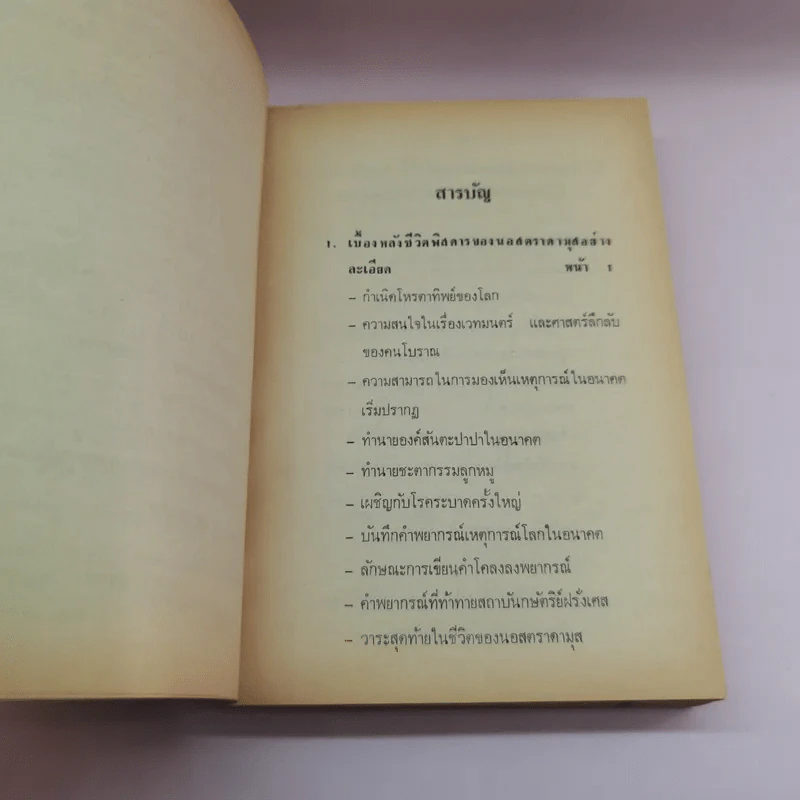 สารบัญ
1. เบื้องหลังชีวิตพิสดารของนอสตราดามุสอย่าง
ละเอียด หน้า 1
– กำเนิดโหรตาทิพย์ของโลก
– ความสนใจในเรื่องเวทมนตร์ และศาสตร์ลึกลับ
ของคนโบราณ
– ความสามารถในการมองเห็นเหตุการณ์ในอนาคต
เริ่มปรากฏ
– ทำนายองค์สันตะปาปาในอนาคต
– ทำนายชะตากรรมลูกหมู
– เผชิญกับโรคระบาดครั้งใหญ่
– บันทึกคำพยากรณ์เหตุการณ์โลกในอนาคต
– ลักษณะการเขียนคำโคลงลงพยากรณ์
– คำพยากรณ์ที่ท้าทายสถาบันกษัตริย์ฝรั่งเศส
– วาระสุดท้ายในชีวิตของนอสตราดามุส